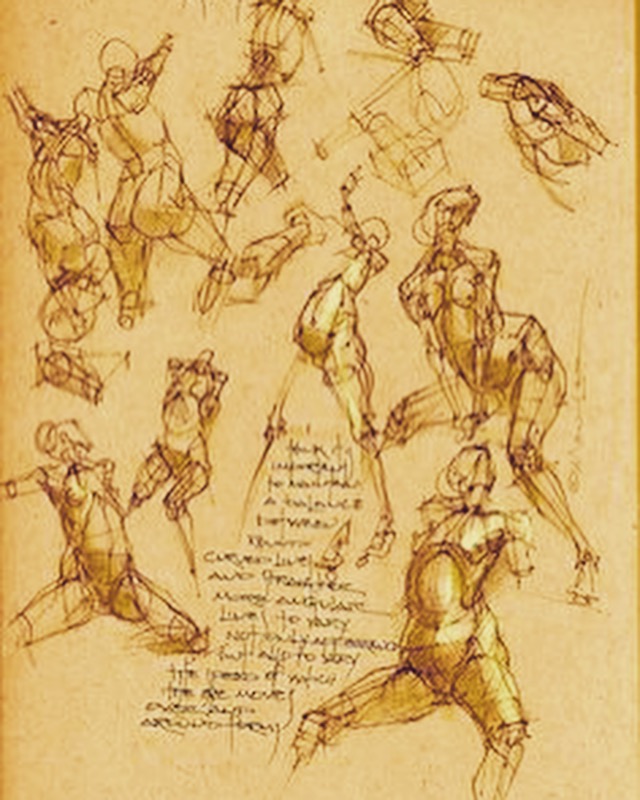 IMPORTANT
TO MAINTAIN
A BALANCE
BETWEEN
CURVED LINES
AND STRAIGHTER
MORE ANGULAR
LINES TO VARY
NOT ONLY APPEARANCE
BUT ALSO TO VARY
THE SPEED AT WHICH
THE EYE MOVES
OVER AND
AROUND FORMS